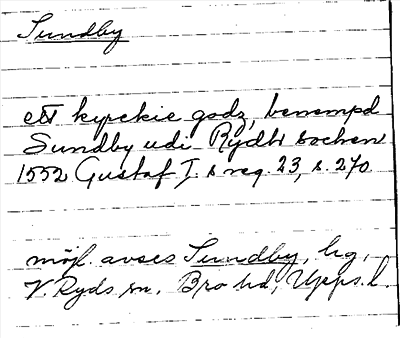 Sundby
ett kyrckie godz, benempd
Sundby udi Rydhs sochen
1552 Gustaf I.s reg. 23, s. 270
möjl. avses Sundby, hg,
V. Ryds sn, Bro hd, Upps. l.